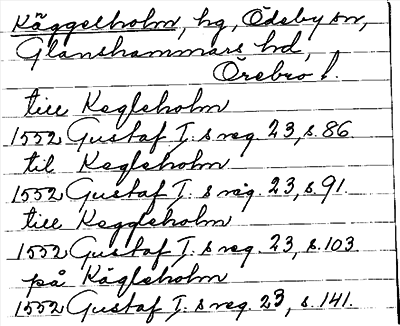 Käggelholm, hg, Ödeby sn,
Glanshammars hd,
Örebro l.
till Kegleholm
1552 Gustaf I. s reg. 23, s. 86.
til Kegleholm
1552 Gustaf I. s reg. 23, s. 91.
till Keggleholm
1552 Gustaf I. s reg. 23, s. 103.
på Kägleholm
1552 Gustaf I. s reg. 23, s. 141.